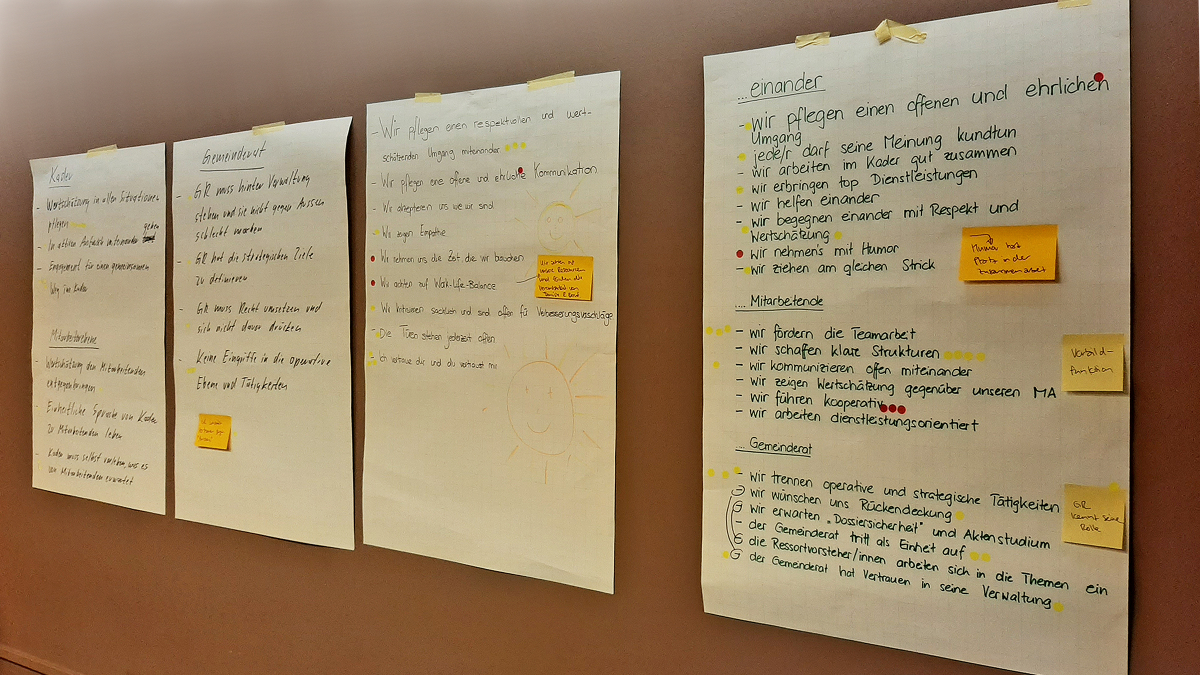 Kader
- Wertschätzung in allen Situationen
pflegen
- In ehrlichem miteinander
geben
- Engagement für einen gemeinsamen
Weg im Kader
Mitarbeiterebene
- Wertschätzung den Mitarbeitenden
entgegenbringen
- Einheitliche Sprache vom Kader
zu Mitarbeitenden leben
- Kader muss selbst vorleben, was es
von Mitarbeitenden erwartet
Gemeinderat
- GR muss hinter Verwaltung
stehen und sie nicht gegen Aussen
schlecht machen
- GR hat die strategischen Ziele
zu definieren
- GR muss Recht umsetzen und
sich nicht davor drücken
- Keine Eingriffe in die operative
Ebene und Tätigkeiten
- Wir pflegen einen respektvollen und wert-
schätzenden Umgang miteinander
- Wir pflegen eine offene und ehrliche Kommunikation
- Wir akzeptieren uns wie wir sind
- Wir zeigen Empathie
Wir nehmen uns die Zeit, die wir brauchen
Wir achten auf Work-Life-Balance
Wir achten auf
unsere Ressourcen
und
- Wir kritisieren sachlich und sind offen für Verbesserungsvorschläge
- Die Türen stehen jederzeit offen
- Ich vertraue dir und du vertraust mir
... einander
- wir pflegen einen offenen und ehrlichen
Umgang
- jede/r darf seine Meinung kundtun
- wir arbeiten im Kader gut zusammen
- wir erbringen top Dienstleistungen
- wir helfen einander
- wir begegnen einander mit Respekt und
Wertschätzung
wir nehmen's mit Humor
- wir ziehen am gleichen Strick
Humor hat
Platz in der
Zusammenarbeit
... Mitarbeitende
- wir fördern die Teamarbeit
- wir schaffen klare Strukturen
- wir kommunizieren offen miteinander
- wir zeigen Wertschätzung gegenüber unseren MA
- wir führen kooperativ
- wir arbeiten dienstleistungsorientiert
Vorbild-
funktion
... Gemeinderat
- wir trennen operative und strategische Tätigkeiten
wir wünschen uns Rückendeckung
wir erwarten „Dossiersicherheit" und Aktenstudium
- der Gemeinderat tritt als Einheit auf
die Ressortvorsteher/innen arbeiten sich in die Themen ein
der Gemeinderat hat Vertrauen in seine Verwaltung
GR
kennt seine
Rolle